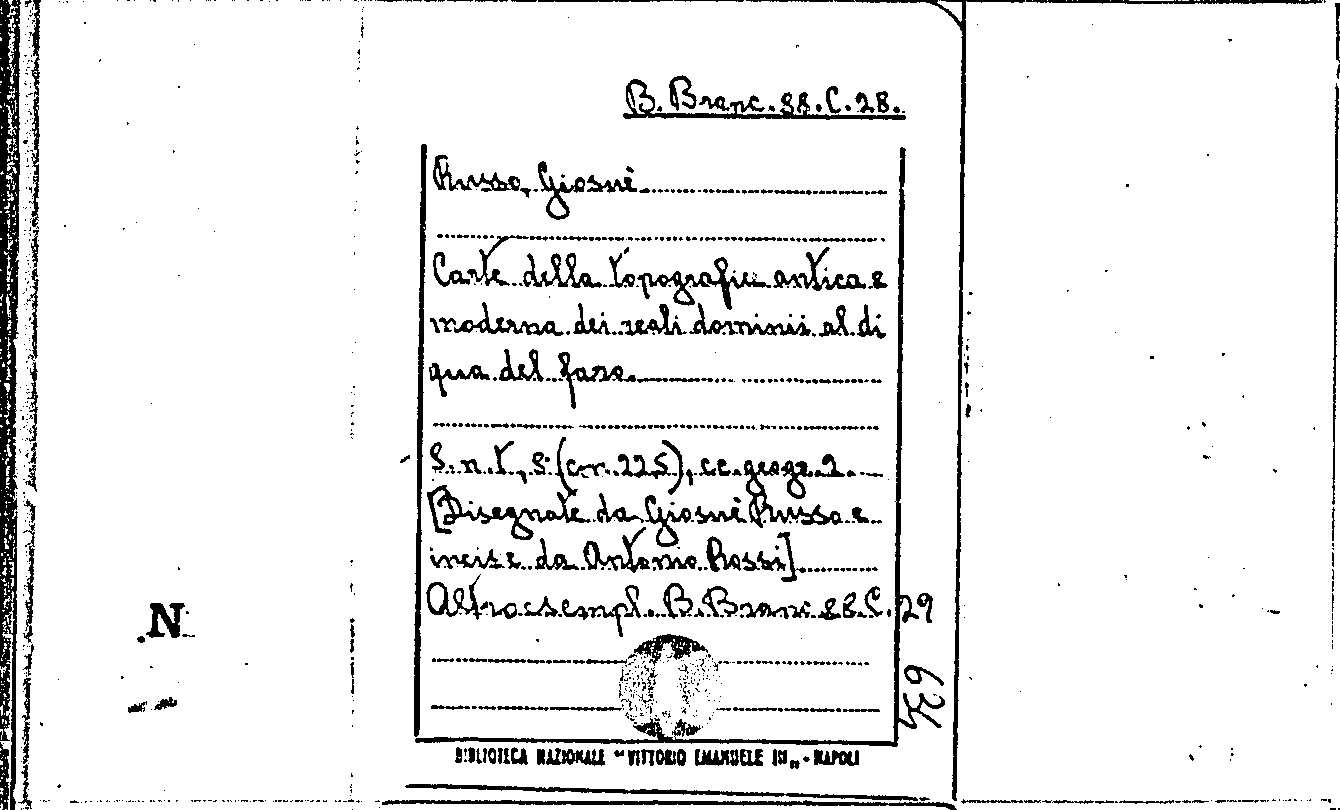 B. Branc. 88. C. 28.
Russo, Giosuè
Carte della topografia antica e
moderna dei reali dominii al di
qua del faro.
S. n. t., 8° (cm. 225), cc. geogr. 2.
[Disegnate da Giosuè Russo e
incise da Antonio Rossi]
Altro esempl. B. Branc 88. C. 29
N
BIBLIOTECA NAZIONALE "VITTORIO EMANUELE III" - NAPOLI